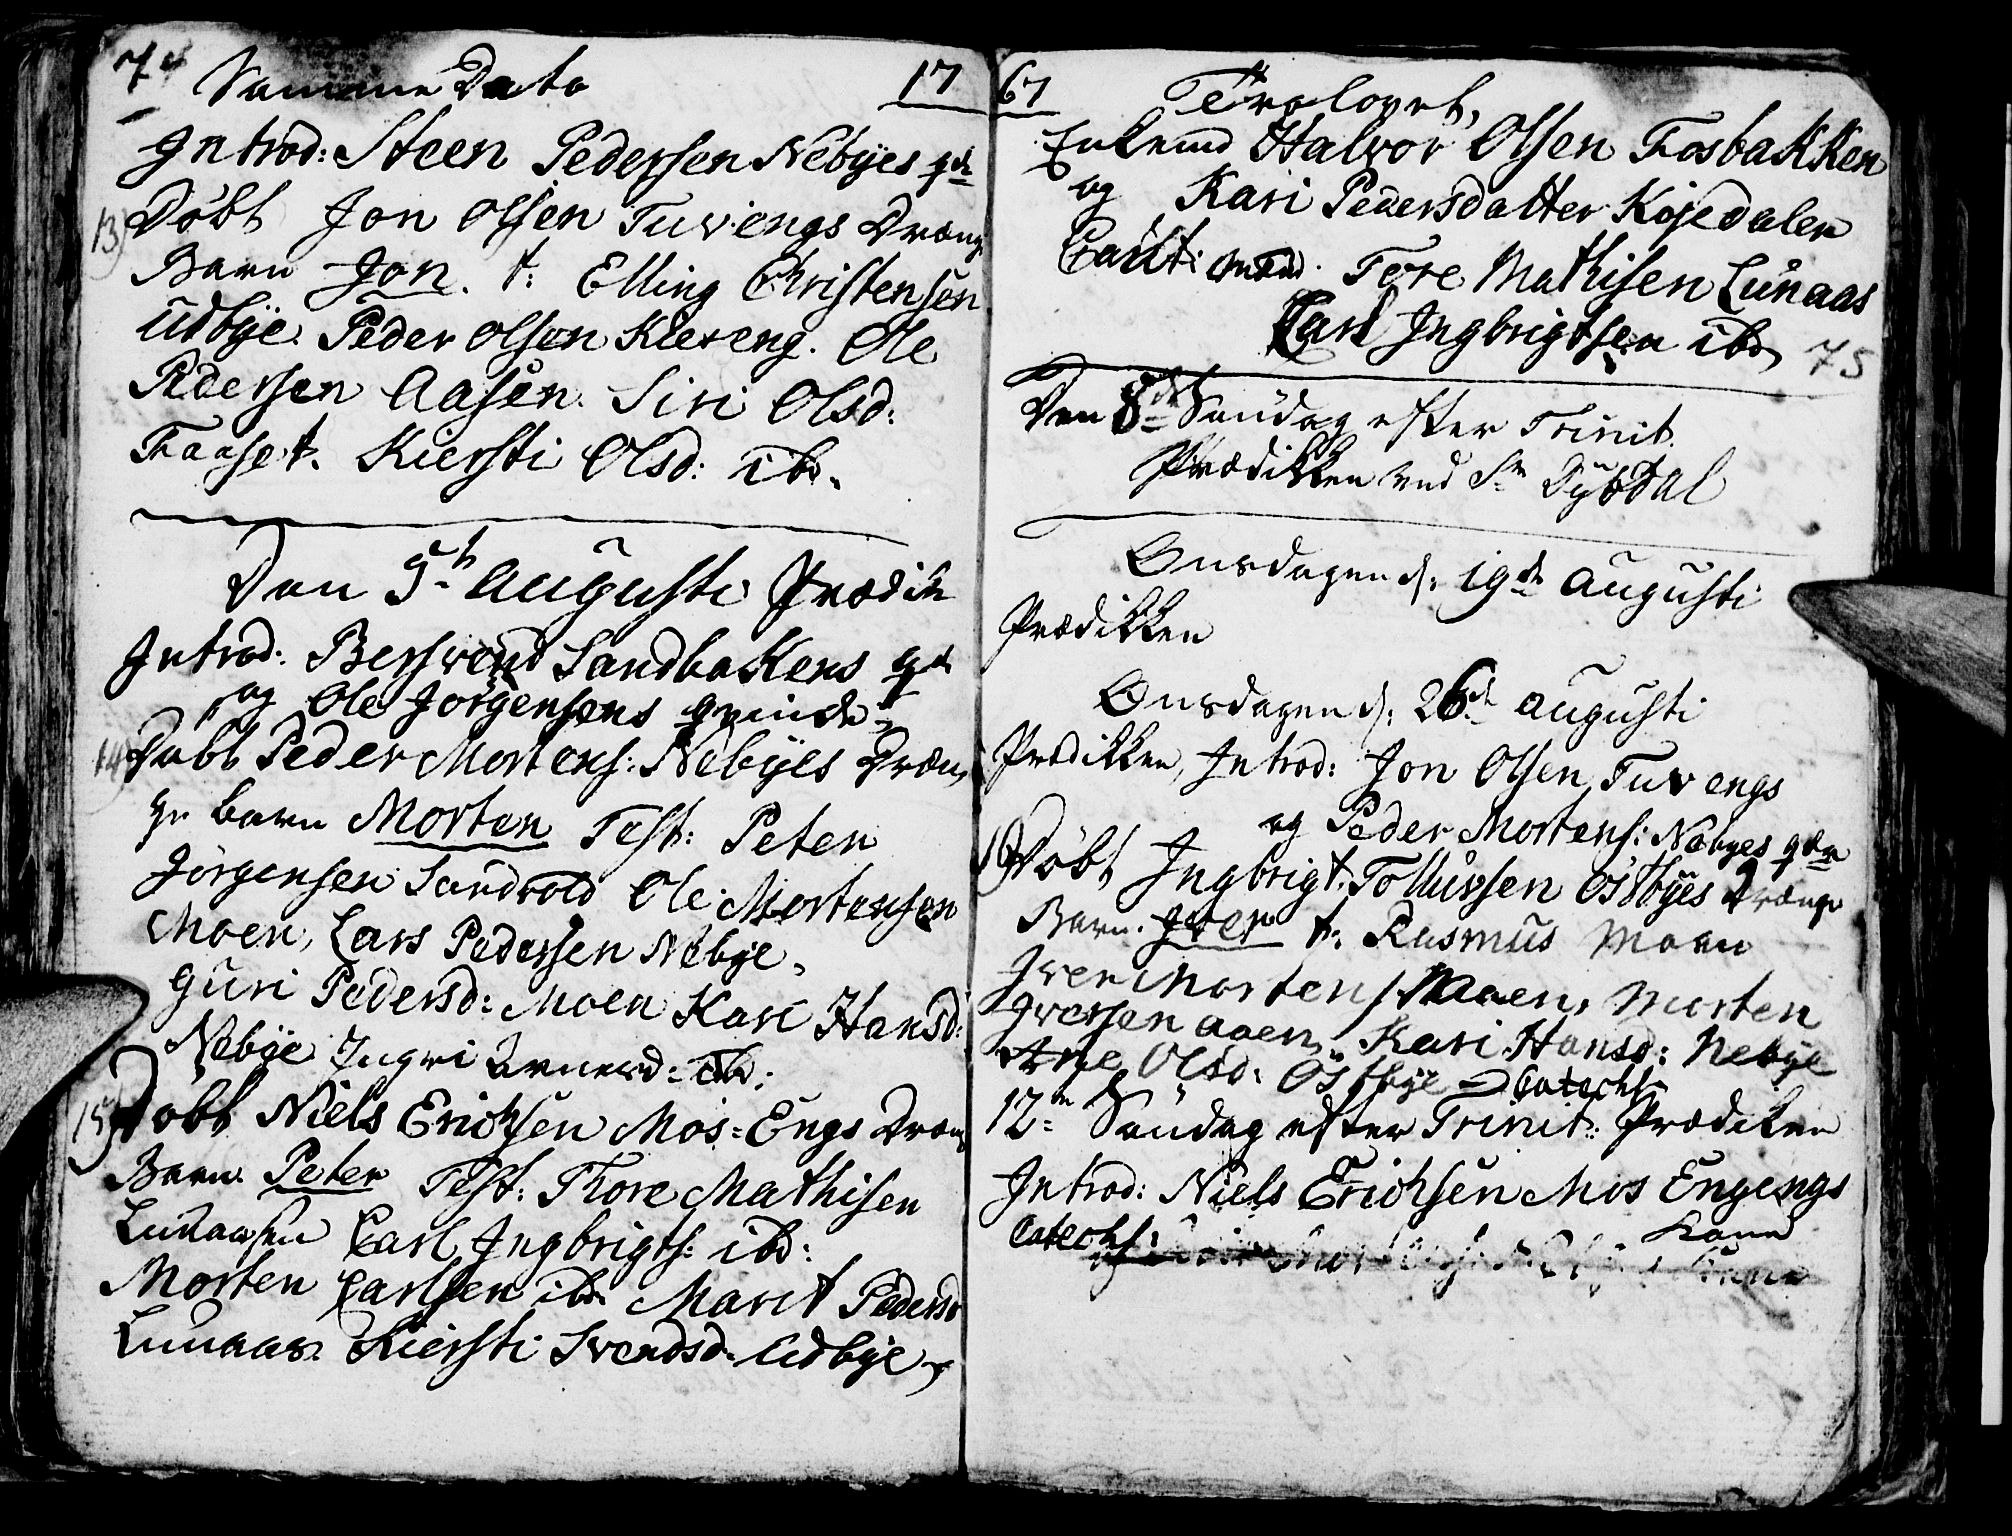 74 Samme Dato 17
Introd: Steen Pedersen Nebyes qde
13) Döbt Jon Olsen Tuvengs Dræng
Barn Jon. t: Elling Christensen
Udbye. Peder Olsen Kiereng. Ole
Pedersen Aasen. Siri Olsd:
Faaset. Kiersti Olsd: ibd.
Den 5te Augusti Prædik
Introd: Berswend Sandbakens qde
og Ole Jörgensens qvinde
14) Döbt Peder Mortens: Nebyes Dræn,
ge barn Morten Test: Peter
Jörgensen Sandvold Ole Mortensen
Moen, Lars Pedersen Nebye,
Guri Pedersd: Moen Kari Hansd:
Nebye Ingri Arnesd: ibd:
15) Döbt Niels Erichsen Mos=Engs Dræng
Barn. Peter Test: Thore Mathisen
Lunaasen Carl Ingbrigts: ibd:
Morten Carlsen ibd Marit Pedersd
Lunaas. Kiersti Svendsd. Udbye
67 Trolovet,
Enkemd Halvor Olsen Fosbakken
og Kari Pedersdatter Köjedalen
Caut: Tore Mathisen Lunaas
Carl Ingbrigtsen ibd 75
Den 8de Söndag efter Trinit.
Prædikken ved Sr Dybdal
Onsdagen d: 19de Augusti
Prædikken
Onsdagen d: 26de Augusti
Prædikken, Introd: Jon Olsen Tuvengs
og Peder Mortens: Nebyes qder
16) Döbt Ingbrigt Tollursen Östbyes Drænge
Barn. Iver t: Rasmus Moen
Iver Morten Moen, Morten
Iversen Aaen, Kari Hansd: Nebye
Ane Olsd: Östbye Catechs
12te Söndag efter Trinit: Prædiken
Introd: Niels Erichsen Mos Engengs
Catechs: Kone